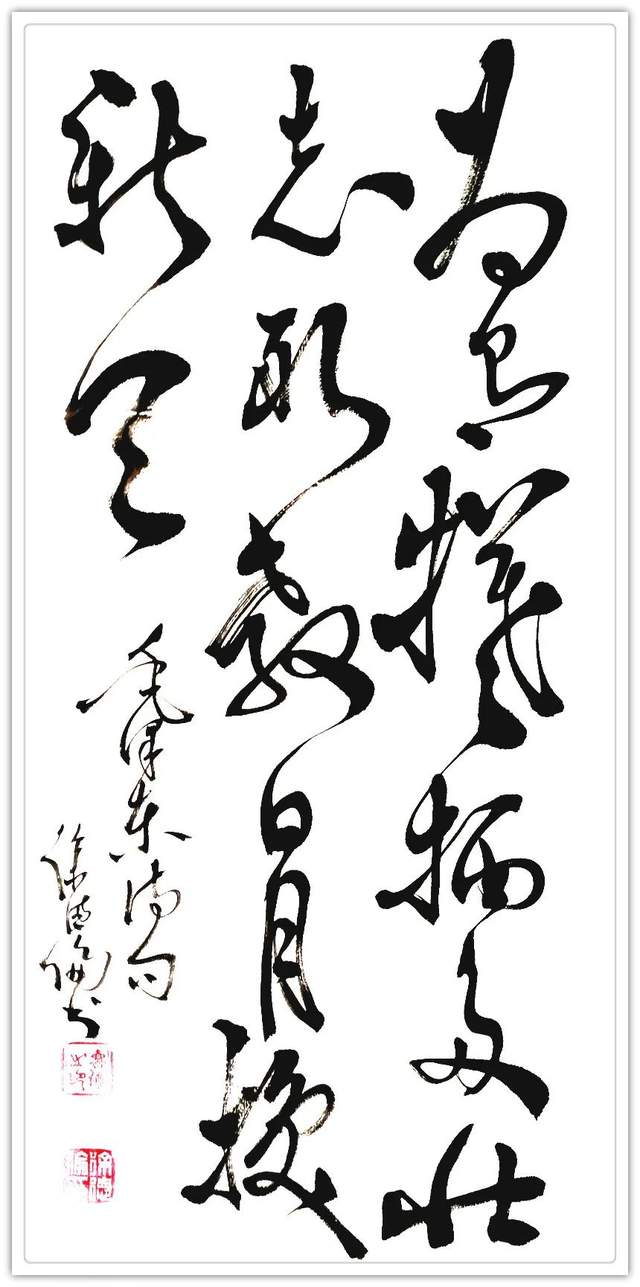 为有牺牲多壮
志敢教日月换
新天
毛泽东诗句
徐
书